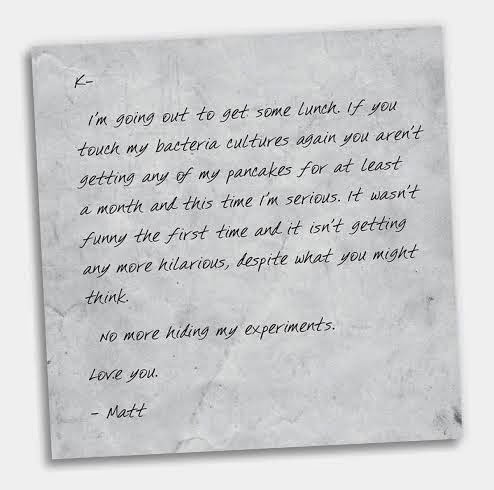 K-
I'm going out to get some lunch. If you
touch my bacteria cultures again you aren't
getting any of my pancakes for at least
a month and this time I'm serious. It wasn't
funny the first time and it isn't getting
any more hilarious, despite what you might
think.
No more hiding my experiments.
Love you.
- Matt